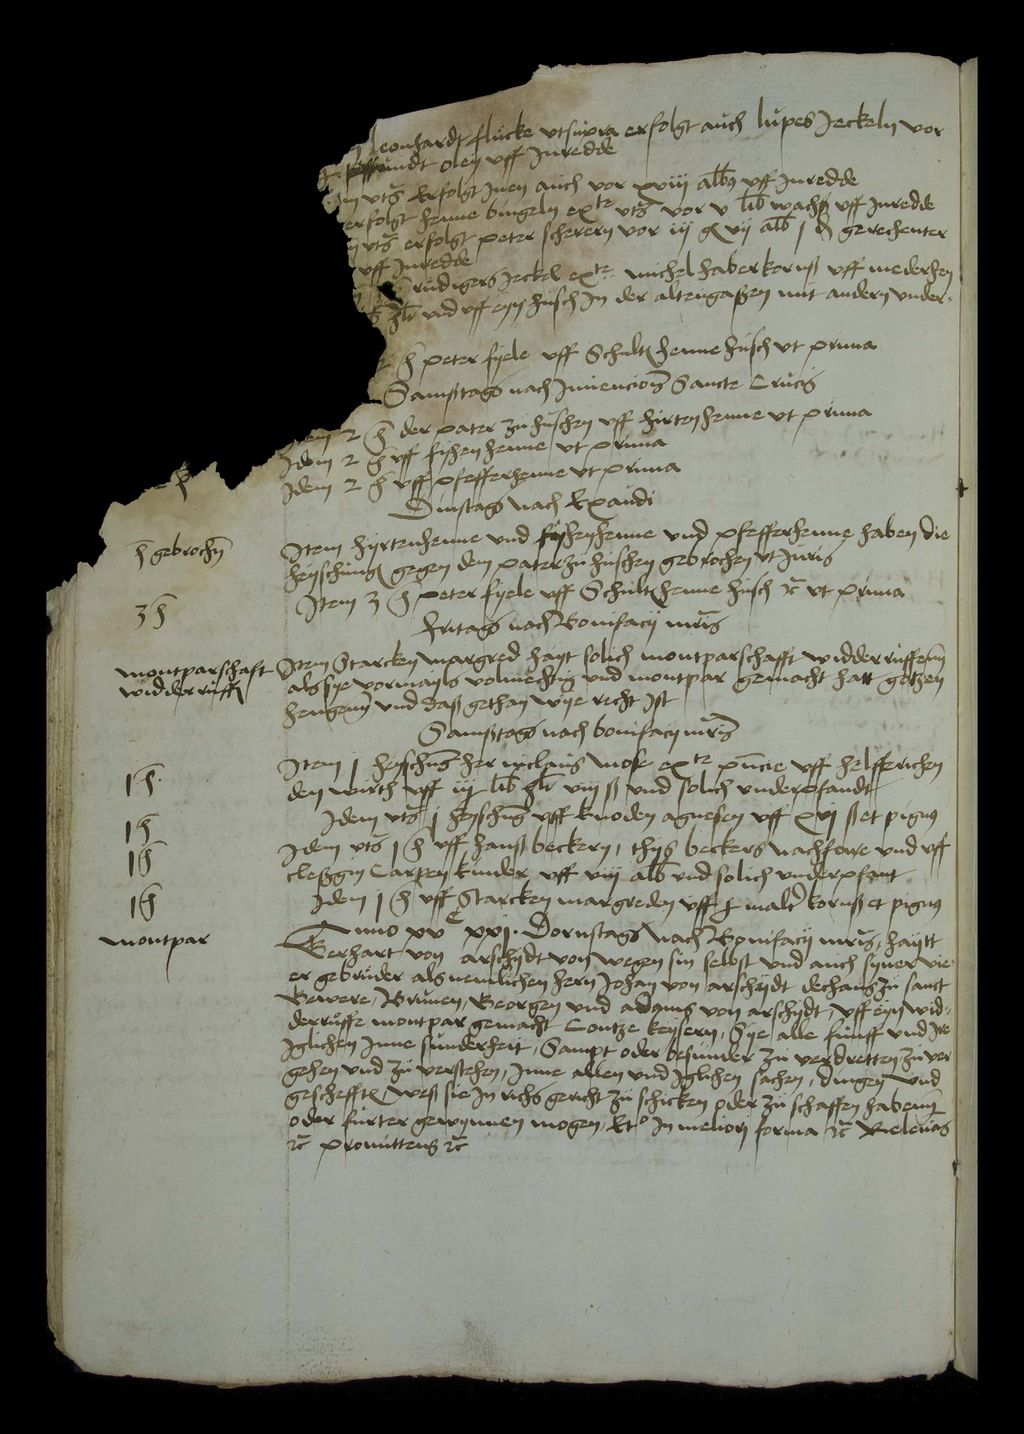 leonhardt flucke utsupra erfolgt auch lupes Jeckeln vor
oley uff Inredde
utß erfolgt Inen auch vor xviij alb9 uff Inredde
erfolgt henne bingeln exte utß vor v lib wachß uff Inredde
utß erfolgt peter scherern vor iij g vij alb j d gerechenter
uff Inredde
rudigers Jeckel exte michel haberkornß uff niederhen
und uff eyn husch In der altengaßen mit andern under-
h peter fiele uff Schultheunne husch ut prima
Samßtags nach Invencionis Sancte Crucis
Item 2 h der pater zu huschen uff hirtenhenne ut prima
Idem 2 h uff fyhenhenne ut prima
Idem 2 h uff pfefferhenne ut prima
Dinstags nach Exaudi
h gebrochen
Item hyrtenhenne und fyhenhenne und pfefferhenne haben die
heyschung gegen dem pater zu huschen gebrochen ut Juris
3 h
Item 3 h peter fiele uff Schultheunne husch rc ut prima
fritags nach Bonifacij mris
montparschaft
widderruffen
Item Starcken margred hayt solich montparschafft widderruffenn
als sye vormayls volmechtig und montpar gemacht hatt gotzen
hengenn und daß gethan wye recht Ist
Samßtags nach bonifacij mris
1 h
Item j heyschung her niclaus mose exte uff helfferichen
den wirth uff iij lib hlr viij ß und solich underpfandt
1 h
Idem utß j heyschung uff knoden agnesen uff xvj ß et pignus
1 h
Idem utß j h uff hanß beckern, thyß beckers nachfare und uff
cleßgin Carpen kinder uff viij alb und solich underpfant
1 h
Idem j h uff Starcken margreden uff j maltr kornß et pignus
montpar
Anno xvc xxj. Dornstags nach Bonifacij mris, haytt
Gerhart von arschydt von wegen sin selbst und auch syner vie-
er gebruder als nemlichen hern Johan von arschydt dechans zu sanct
Gewere, Brunen, Georgen und adams von arschydt, uff eyn wid-
derruffe montpar gemacht Contze keysern, Sye alle funff und Ire
Iglichen Inne sunderheit, Sampt oder besunder zu verdretten zu ver
gehen und zu verstehen, Inne allen und Iglichen sachen, dingen und
gescheffte weß sie In richs gericht zu schicken oder zu schaffen habenn
oder furter gewynnen mogen, Et In meliori forma rc Relevans
rc promittens rc